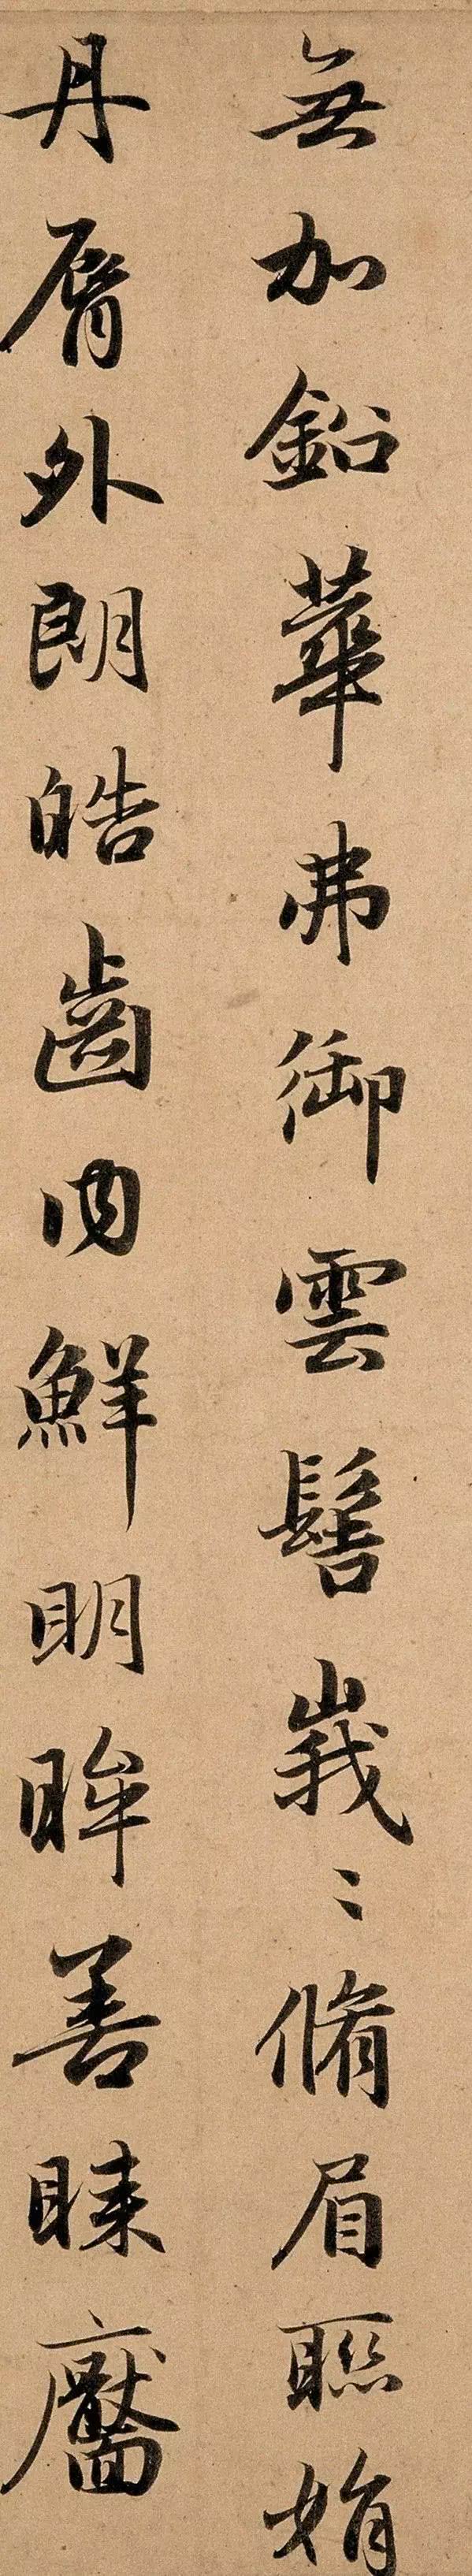 無加鉛華弗御雲髻峩〻脩眉聮娟
丹脣外朗皓齒内鮮明眸善睞靨